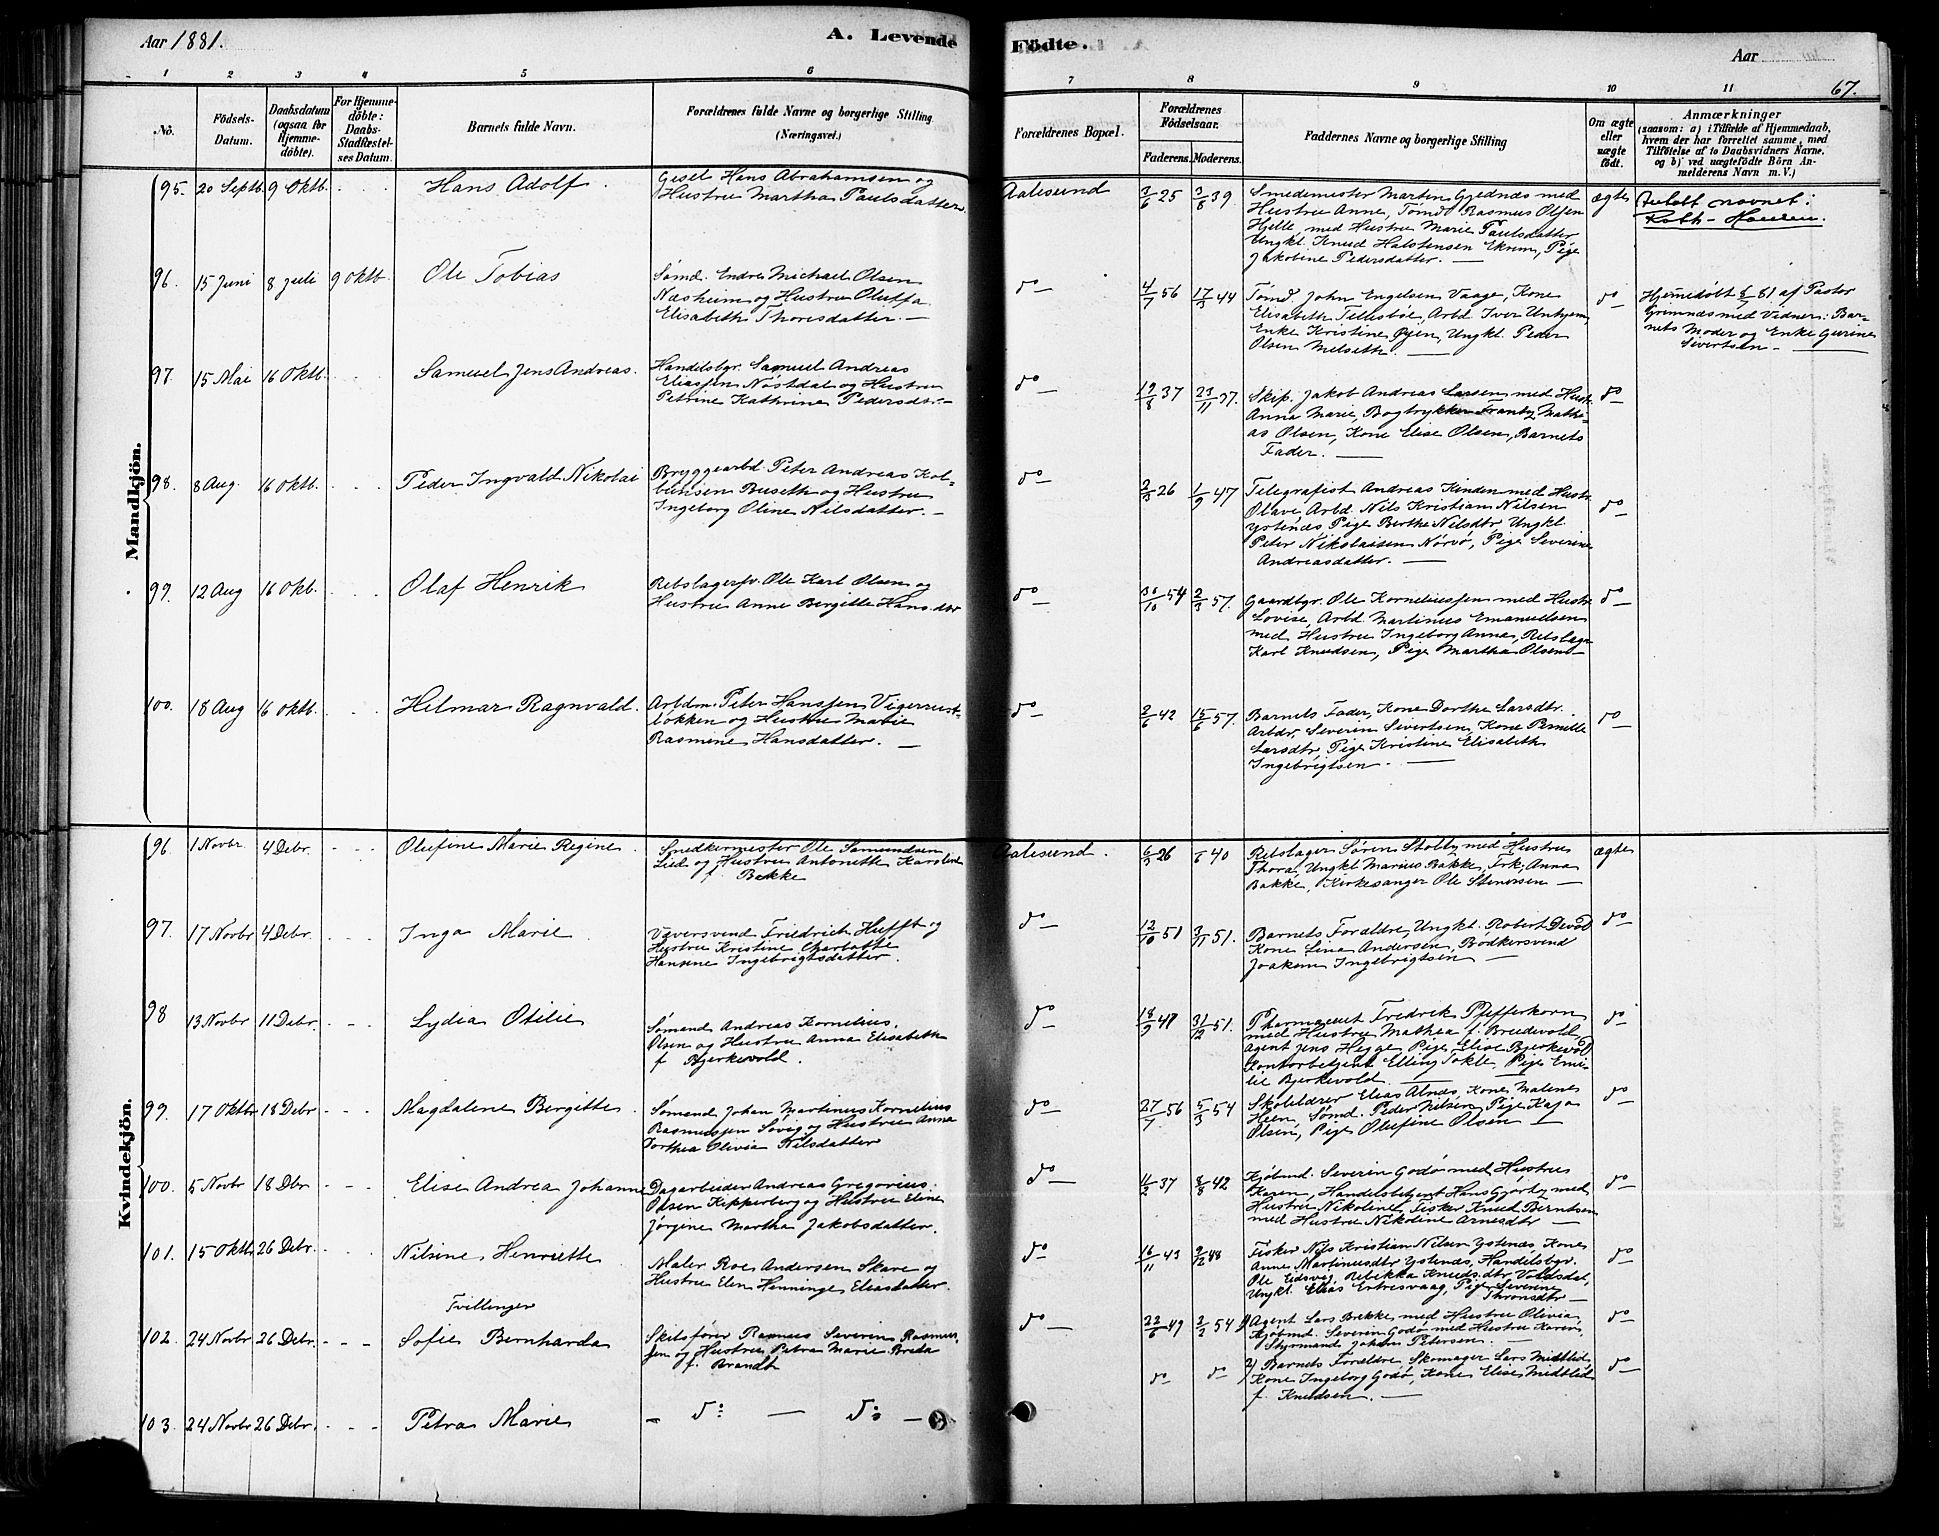 Aar 1881.
A. Levende Födte.
Aar
67.
1 2 3 4 5 6 7 8 9 10 11
No. Födsels-Datum. Daabsdatum (ogsaa for Hjemme-döbte). For Hjemme-döbte: Daabs-Stadfæstel-ses Datum. Barnets fulde Navn. Forældrenes fulde Navne og borgerlige Stilling (Næringsvei.) Forældrenes Bopæl. Forældrenes Födselsaar. Faderens. Moderens. Faddernes Navne og borgerlige Stilling Om ægte eller uægte födt.
Anmærkninger
(saasom: a) i Tilfælde af Hjemmedaab,
hvem der har forrettet samme, med
Tilföielse af to Daabsvidners Navne,
og b) ved uægtefödte Börn An-
melderens Navn m. V.)
Mandkjön.
95. 20 Septb. 9 Oktb. Hans Adolf.
Gesel Hans Abrahamsen og
Hustru Martha Paulsdatter
Aalesund 3/6 25 3/8 39
Smedemester Morten Gjednæs med
Hustru Anne, Tømd Rasmus Olsen
Hjelle, med Hustru Marie Paulsdatter
Ungkl. Knud Halstensen Ekrem, Pige
Jakobine Pedersdatter.
ægte
Antatt navnet:
Roth-Hansen.
96. 15 Juni 8 Juli 9 Oktb. Ole Tobias
Sømd. Endre Michael Olsen
Næsheim og Hustru Oluffa
Elisabeth Thoresdatter.
do 4/7 56 17/3 44
Tømd. John Engelsen Vaage, Kone
Elisabeth Tellesbøe, Arbd Iver Unhjem,
Enke Kristine Øien, Ungkl. Peder
Olsen Melseth.
do
Hjemedøbt 8/7 81 af Pastor
Grimnæs med Vidner: Bar-
nets Moder og Enke Gurine
Sivertsen
97. 15 Mai 16 Oktb. Samuel Jens Andreas.
Handelsbgr. Samuel Andreas
Eliassen Nøstdal og Hustru
Petrine Kathrine Pedersdtr.
do 19/8 37 23/11 37.
Skip. Jakob Andreas Larsen med Hustr.
Anna Marie, Bogtrykker Frantz Mathi-
as Olsen, Kone Elise Olsen, Barnets
Fader.
do
98. 8 Aug. 16 Oktb. Peder Ingvald Nikolai
Bryggearbd. Peter Andreas Kol-
bensen Buseth og Hustru
Ingeborg Oline Nilsdatter.
do 2/3 26 1/9 47
Telegrafist Andreas Kinden med Hustr.
Olave Arbd Nils Kristian Nilsen
Ystenæs Pige Berthe Nilsdtr, Ungkl
Peter Nikolaisen Nørvø, Pige Severine
Andreasdatter.
do
99. 12 Aug 16 Okb. Olaf Henrik
Rebslagersv. Ole Karl Olsen og
Hustru Anne Birgitte Hansdtr
do 30/10 54 2/3 57.
Gaardbgr. Ole Korneliussen med Hustr.
Lovise, Arbd Martinus Emanuelsen
med Hustru Ingeborg Anne, Rebslager
Karl Knudsen, Pige Martha Olsen
do
100. 18 Aug 16 Oktb. Hilmar Ragnvald.
Arbdm. Peter Hanssen Vigerust-
løkken og Hustru Marie
Rasmine Hansdatter.
do 2/6 42 15/6 57.
Barnets Fader, Kone Dorthe Larsdtr.
Arbdr. Severin Sivertsen, Kone Pernille
Larsdtr, Pige Kristine Elisabeth
Ingebrigtsen.
do
Kvindekjön.
96. 1 Novbr 4 Debr. Olufine Marie Regine.
Snedkermester Ole Samundsen
Lied og Hustru Antonette Karoline
f. Bakke
Aalesund. 6/3 26 40
Rebslager Søren Stolby med Hustru
Thora, Ungkl Marius Bakke, Frk. Anna
Bakke, Kirkesanger Ole Stenersen
ægte
97. 17 Novbr 4 Debr. Inga Marie
Væversvend Friedrich Hufft og
Hustru Kristine Charlotte
Hansine Ingebrigtsdatter.
do 12/10 51 3/11 51.
Barnets Forældre, Ungkl. Robert Devold
Kone Lina Andersen, Bødkersvend
Joakim Ingebrigtsen
do
98 13 Novbr 11 Debr. Lydia Otilie
Sømand Andreas Kornelius.
Olsen og Hustru Anna Elisabeth
f. Bjerkevold.
do 18/9 48 31/12 51.
Pharmaceut Fredrik Pfefferkorn
med Hustru Mathea f. Bredevold
Agent Jens Hegge, Pige Elise Bjerkevold
Kontorbetjent Elling Tokle, Pige Emi-
lie Bjerkevold.
do
99. 17 Oktbr 18 Debr Magdalene Bergitte.
Sømand Johan Martinus Kornelius
Rasmussen Søvig og Hustru Anna
Dorthea Olivia Nilsdatter
do 27/7 56 5/3 54
Skolelærer Elias Alnæs, Kone Malene
Heen, Sømd. Peder Nilsen, Pige Kaja
Olsen, Pige Olufine Olsen
do
100. 5 Novbr 18 Dbr. Elise Andrea Johanne
Dagarbeider Andreas Gregorius.
Olsen Kipperberg og Hustru Eline
Jørgine Martha Jakobsdatter.
do 11/2 37 8/8 42
Kjøbmd. Severin Godø med Hustru
Karen, Handelsbetjent Hans Gjørby med
Hustru Nikoline, Fisker Knud Berntsen
med Hustru Nikoline Arnesdtr
do
101. 15 Oktb 26 Debr. Nilsine Henriette
Maler Roe Andersen Skare og
Hustru Elen Henninge Eliasdatter.
do 16/11 43 9/12 48
Fisker Nils Kristian Nilsen Ystenæs, Kone
Anne Martinusdtr Ystenæs, Handelsbgr.
Ole Eidsvig, Rebikka Knudsdtr Voldsdal,
Ungkl. Elias Ertresvaag, Pige Severine
Thronsdtr
do
Tvillinger
102. 24 Novbr 26 Debr. Sofie Bernharda
Skibsfører Rasmus Severin Rasmus-
sen og Hustru Petra Marie Breda
f. Brandt
do 22/6 49 2/2 54
1) Agent Lars Bakke med Hustru Olivia,
Kjøbmd. Severin Godø med Hustru Karen,
Styrmand Johan Petersen.
do
103. 24 Novbr 26 Debr. Petra Marie
do do
do do
2) Barnets Forældre, Skomager Lars Midtlid,
Kone Ingeborg Godø, Kone Elise Midtlid
f. Knudsen.
do